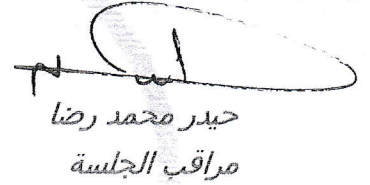 حيدر محمد رضا
مراقب الجلسة